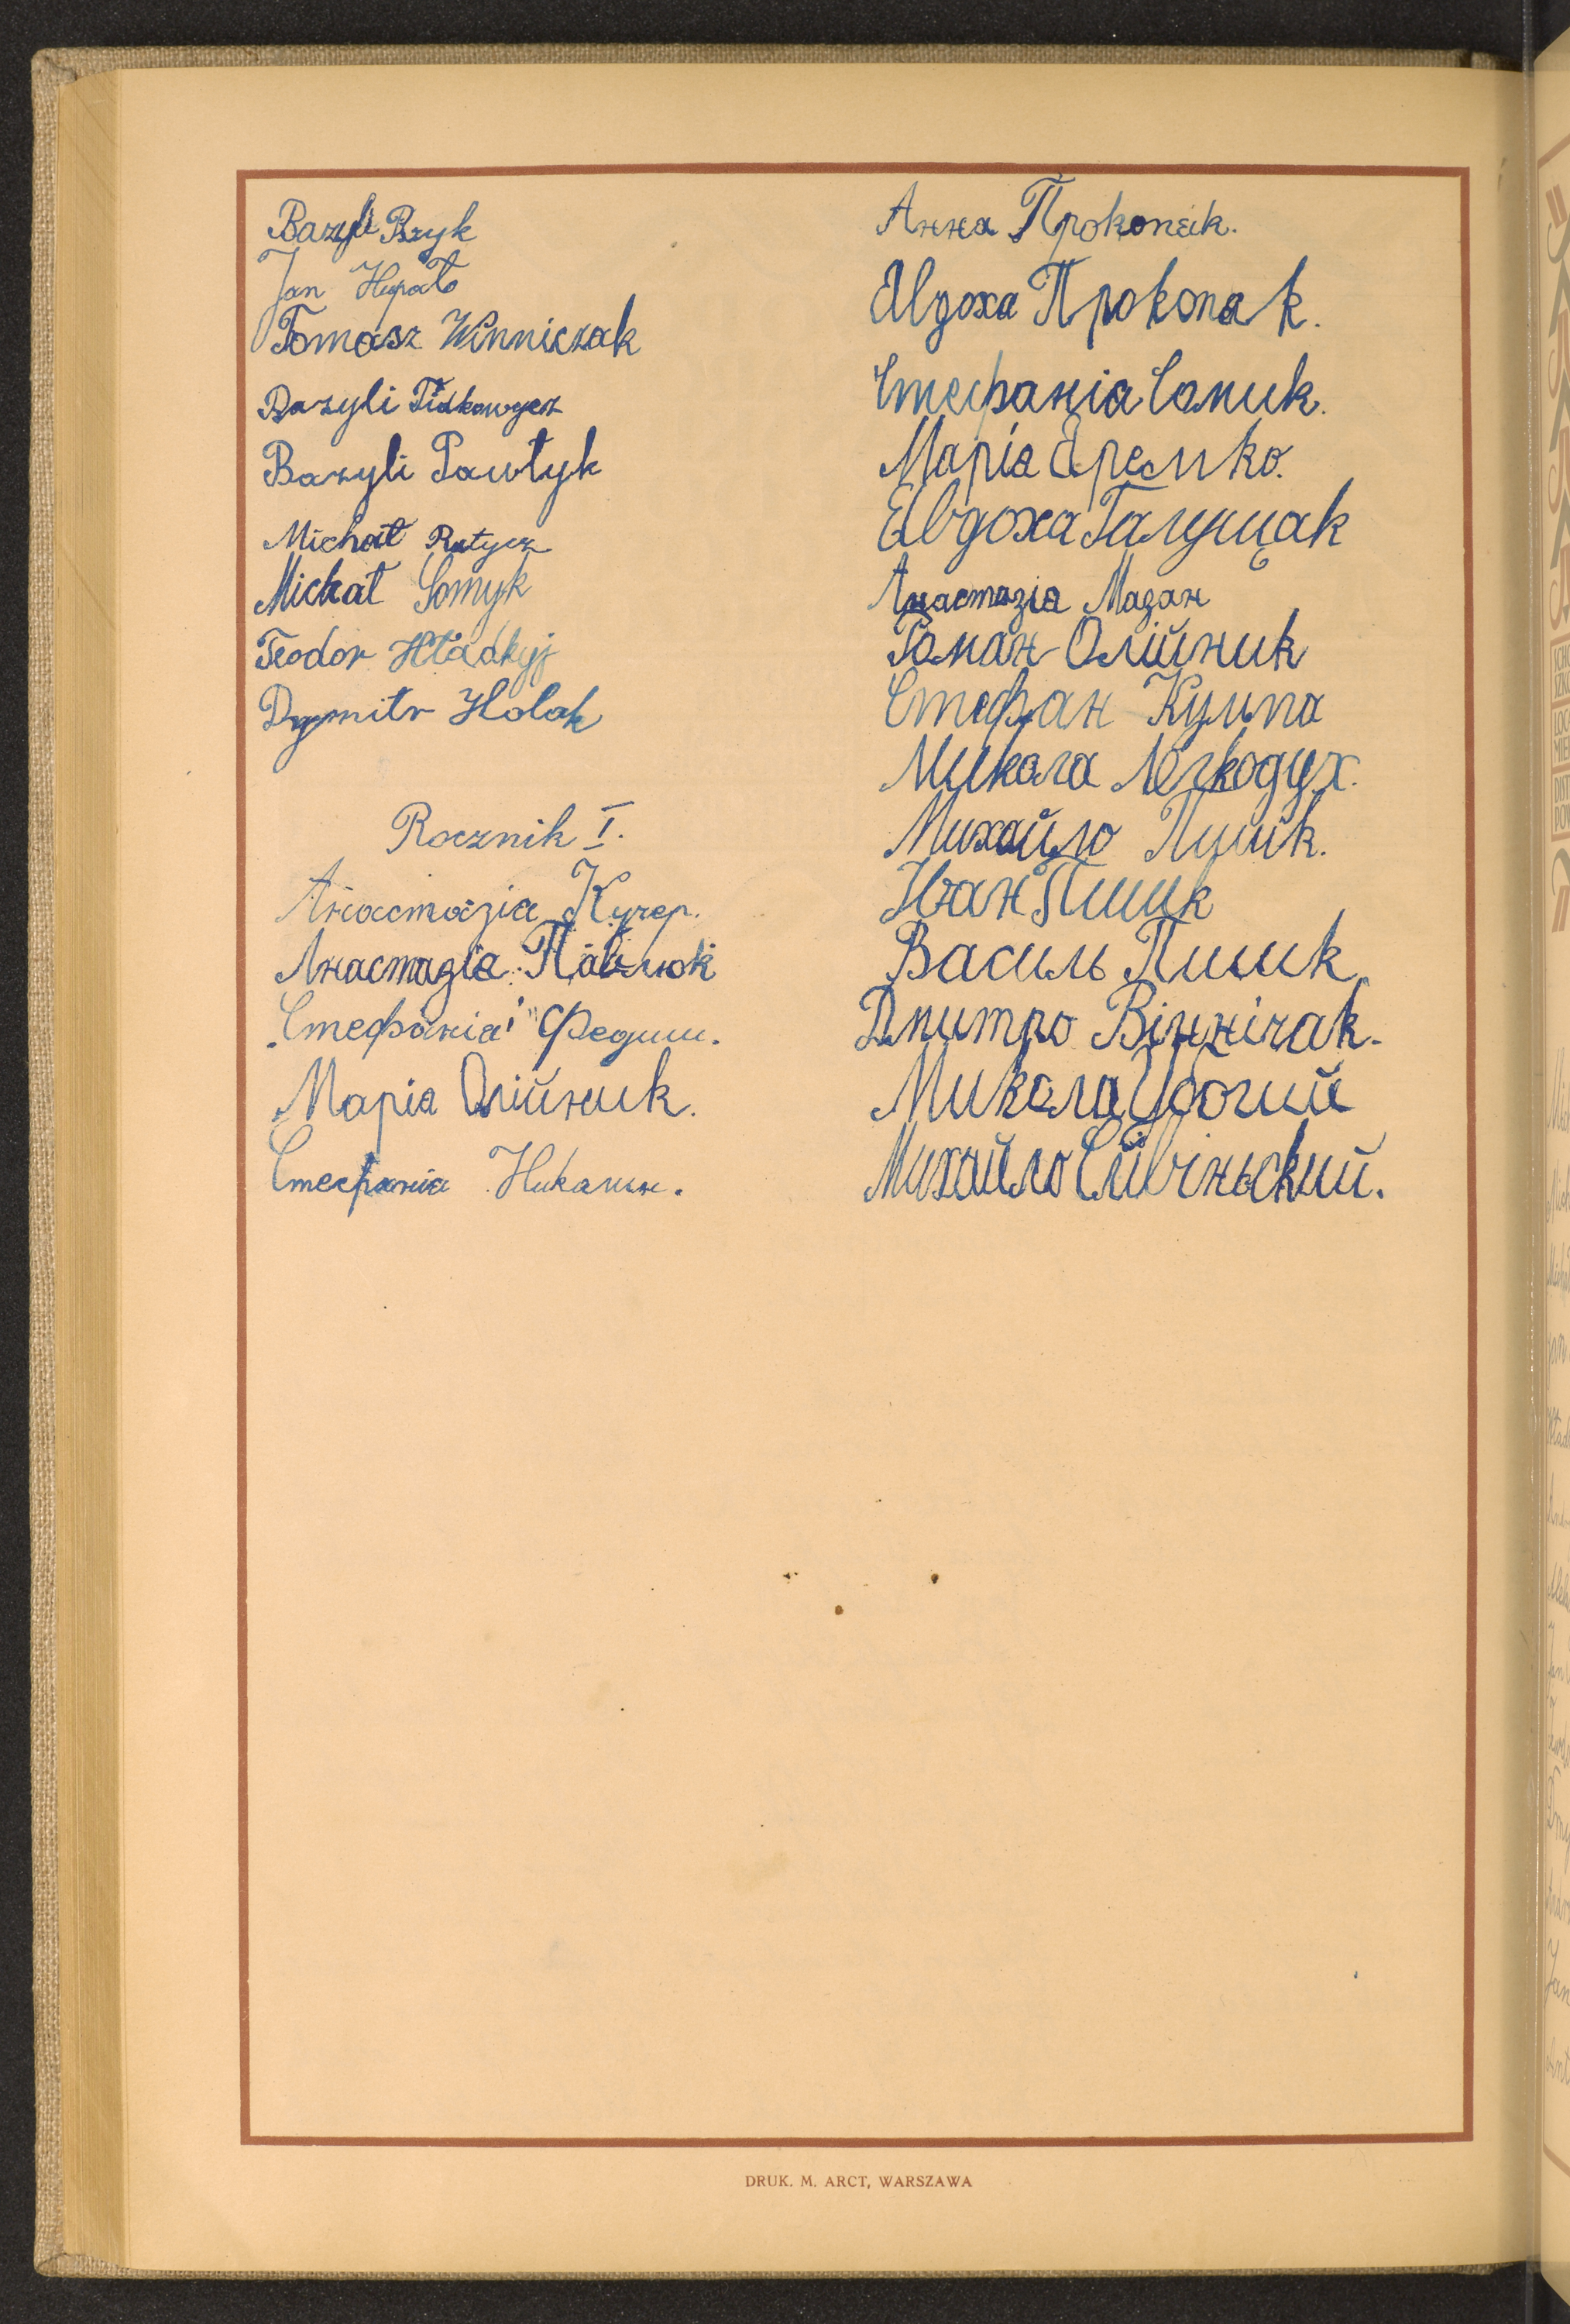 Bazyli Bzyk
Jan Hupało
Tomasz Winniczak
Bazyli Fidkowycz
Bazyli Pawłyk
Michał Ratycz
Michał Somyk
Teodor Hładkyj
Dymitr Holak
Rocznik I.
Анастазіа Кучер.
Анастазіа Павлюк
Стефаніа Федиш.
Маріа Олійник.
Стефаніа
Анна Прокопак.
Евдоха Прокопак.
Стефаніа Сомик.
Маріа Яремко.
Евдоха Галущак
Анастазіа Мазан
Роман Олійник
Стефан Кульпа
Микола Легкодух.
Михайло Пшик.
Иван Пшик
Василь Пшик
Дмитро Віннічак.
Микола Убогий
Михайло Слівіньский.
DRUK. M. ARCT, WARSZAWA